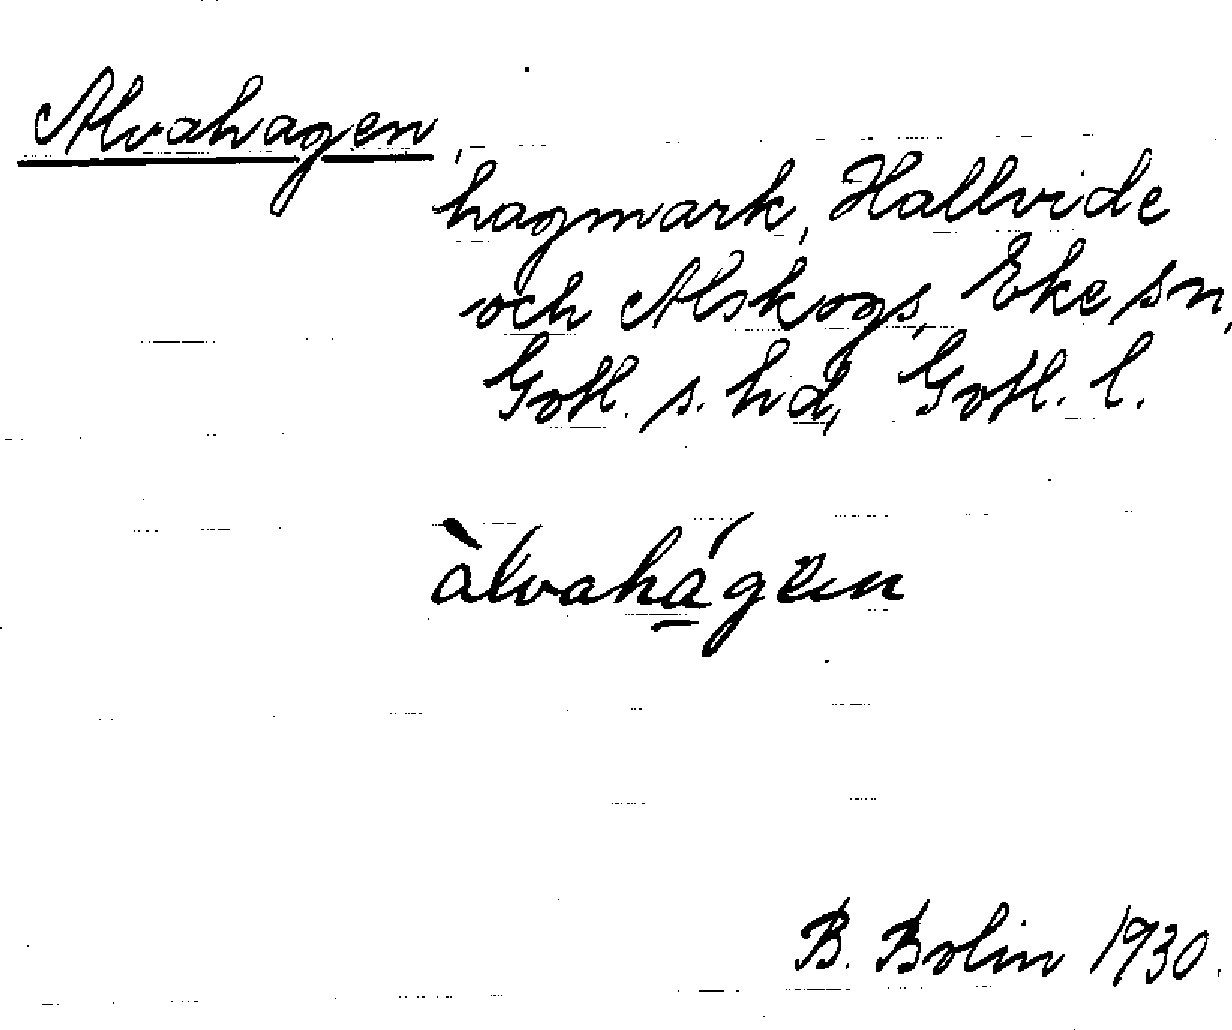 Alvahagen,
hagmark, Hallvide
och Alskogs, Eke sn,
Gotl. s. hd, Gotl. l.
àlvahá̱gen
B. Bolin 1930.